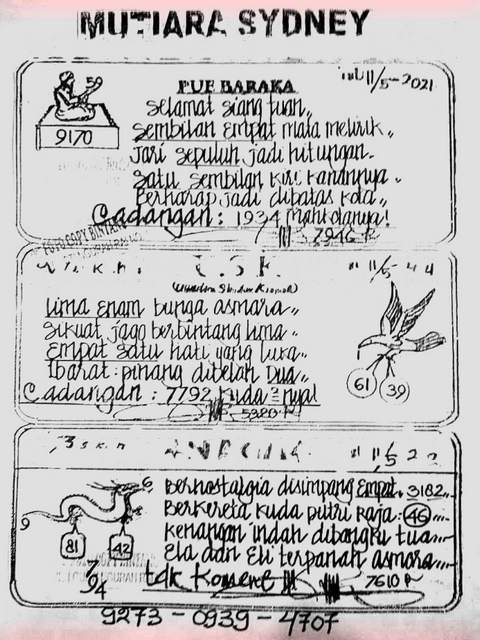 MUTIARA SYDNEY
11/5-2021
PUF BARAKA
59
9170
Selamat siang tuan,,
Sembilan Empat mata melirik,,
Jari sepuluh jadi hitungan.
Satu sembilan kiri kanannya,,
Berharap jadi dibatas kota,,
Cadangan : 1934
7946 R
FOTO COPY BINTANG
11/5-
Lima Enam bunga asmara,,
Sikuat jago berbintang lima,,
Empat satu hati yang luka,,
Ibarat pinang dibelah Dua,,
Cadangan : 7792 Kuda
5320 R
61
39
11/5
Bernostalgia disimpang Empat. 3182,,
Berkereta kuda putri Raja: 46
Kenangan indah dibangku tua
Ela dan Eli terpanah asmara
7610 R
9
6
81
42
9273-0939-4707